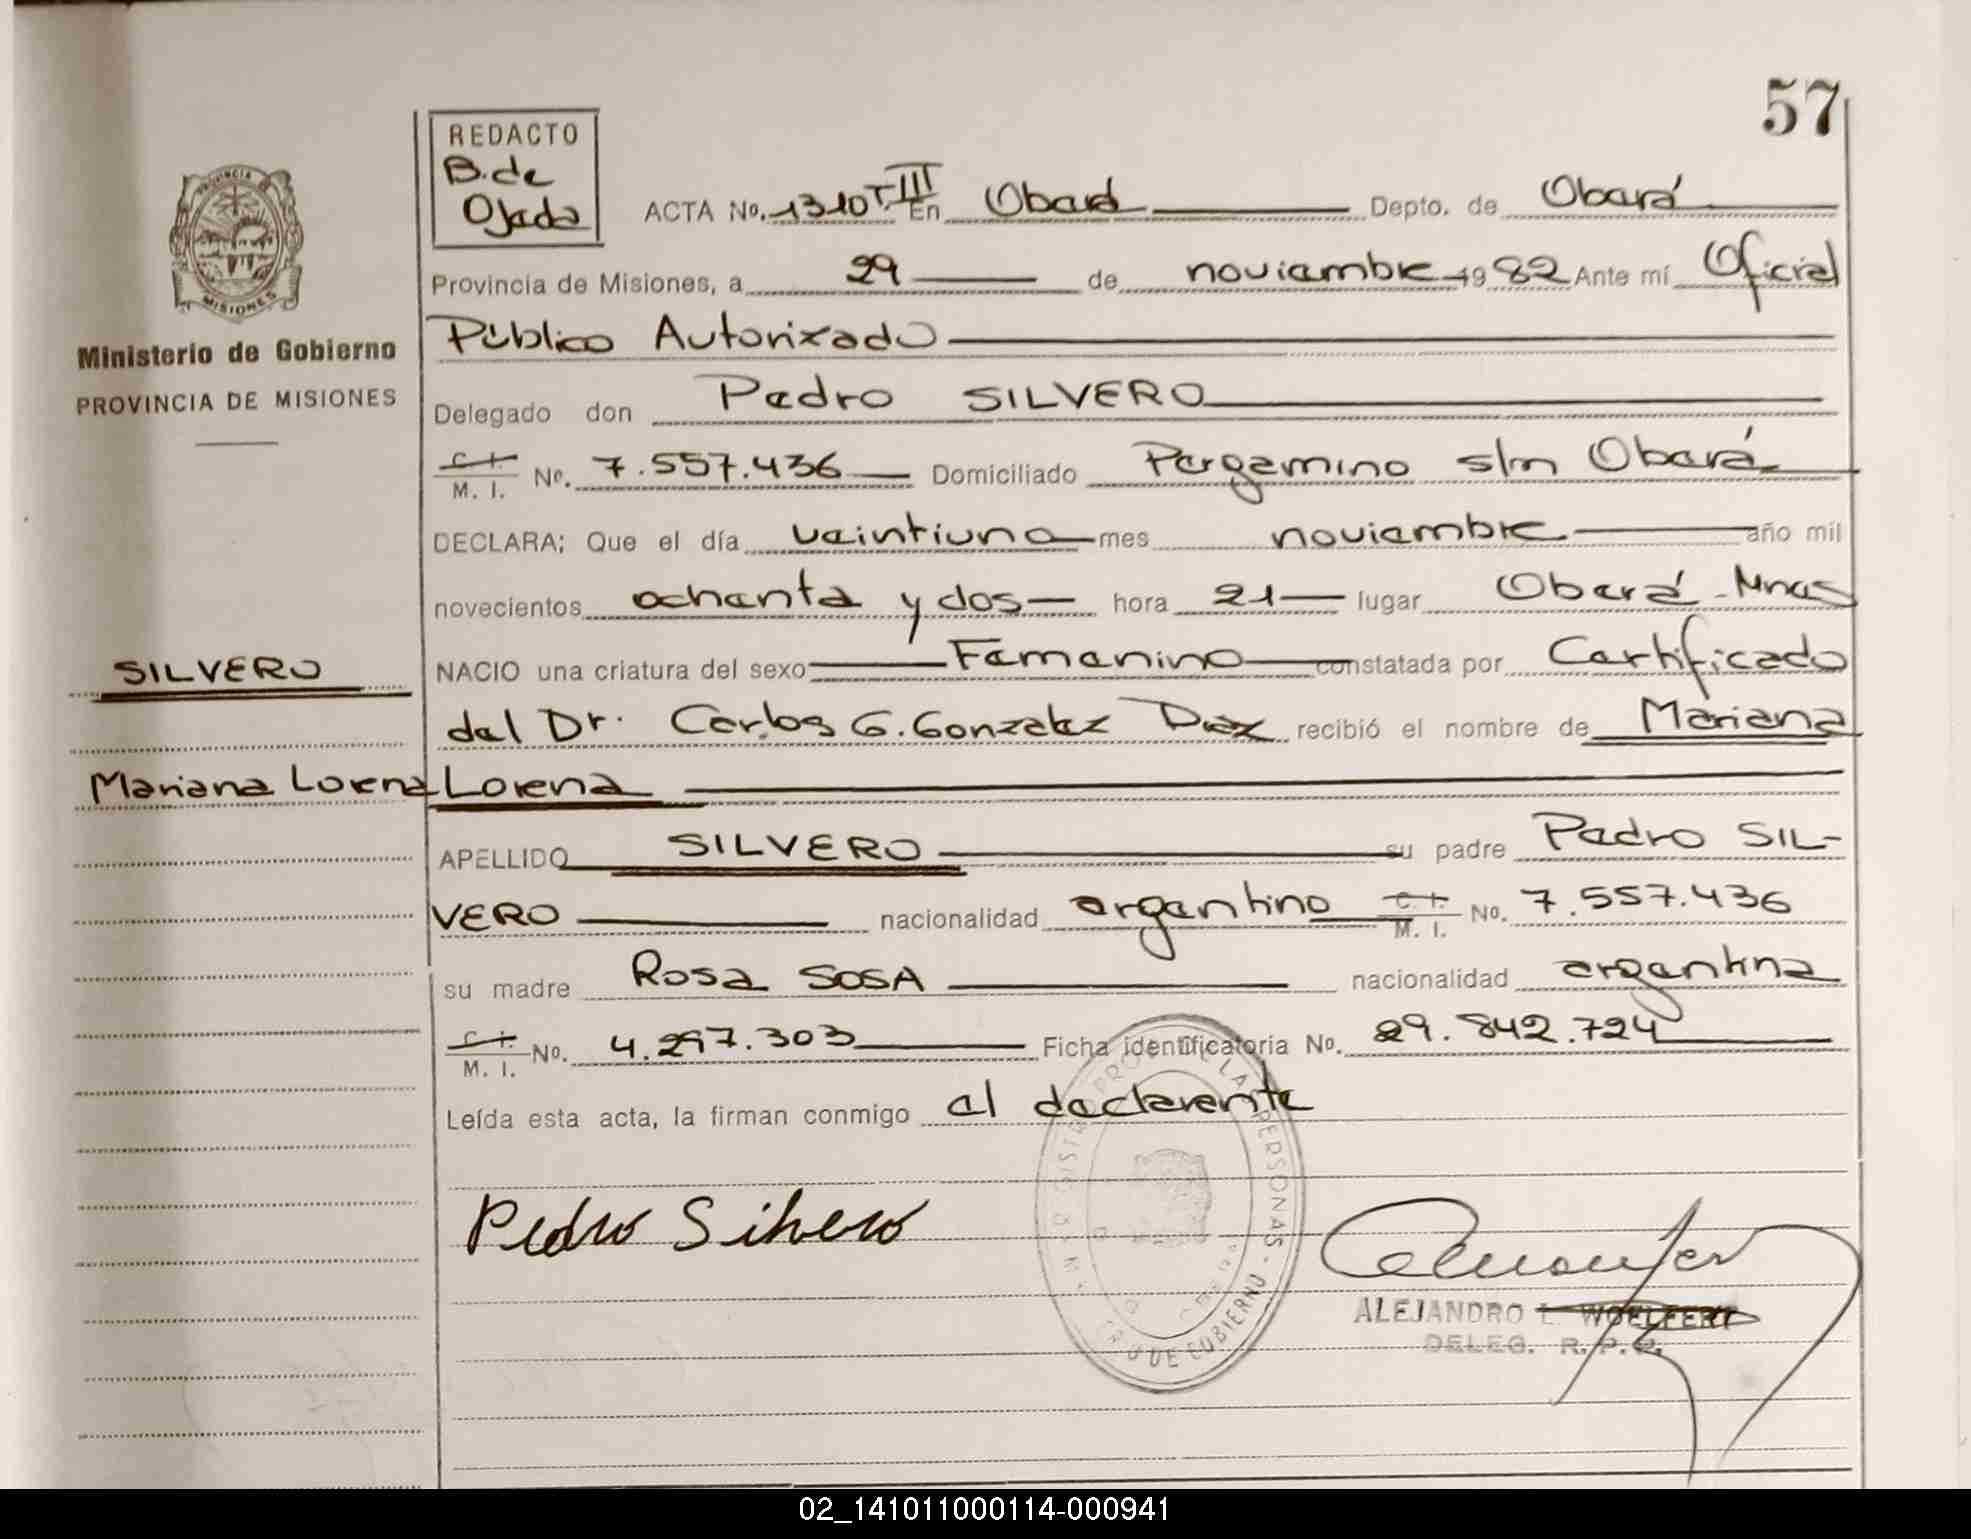 57
REDACTO
B. de
Ojeda
ACTA No. 1310 T. III En Oberá Depto. de Oberá
Provincia de Misiones, a 29 de noviembre 1982 Ante mí Oficial
Público Autorizado
Ministerio de Gobierno
PROVINCIA DE MISIONES
Delegado don Pedro SILVERO
C. I.
M. I. No. 7.557.436 Domiciliado Pergamino s/n Oberá
DECLARA; Que el día veintiuno mes noviembre año mil
novecientos ochenta y dos hora 21 lugar Oberá - Mnes
SILVERO
NACIO una criatura del sexo Femenino constatada por Certificado
del Dr. Carlos G. Gonzalez Diaz recibió el nombre de Mariana
Mariana Lorena
Lorena
APELLIDO SILVERO su padre Pedro SIL-
VERO nacionalidad argentino C. I.
M. I. No. 7.557.436
su madre Rosa SOSA nacionalidad argentina
C. I.
M. I. No. 4.297.303 Ficha identificatoria No. 29.842.724
Leída esta acta, la firman conmigo el declarente
Pedro Silvero
PERSONAS - GOBIERNO
ALEJANDRO L. WOELFERT
DELEG. R. P.
02_141011000114-000941